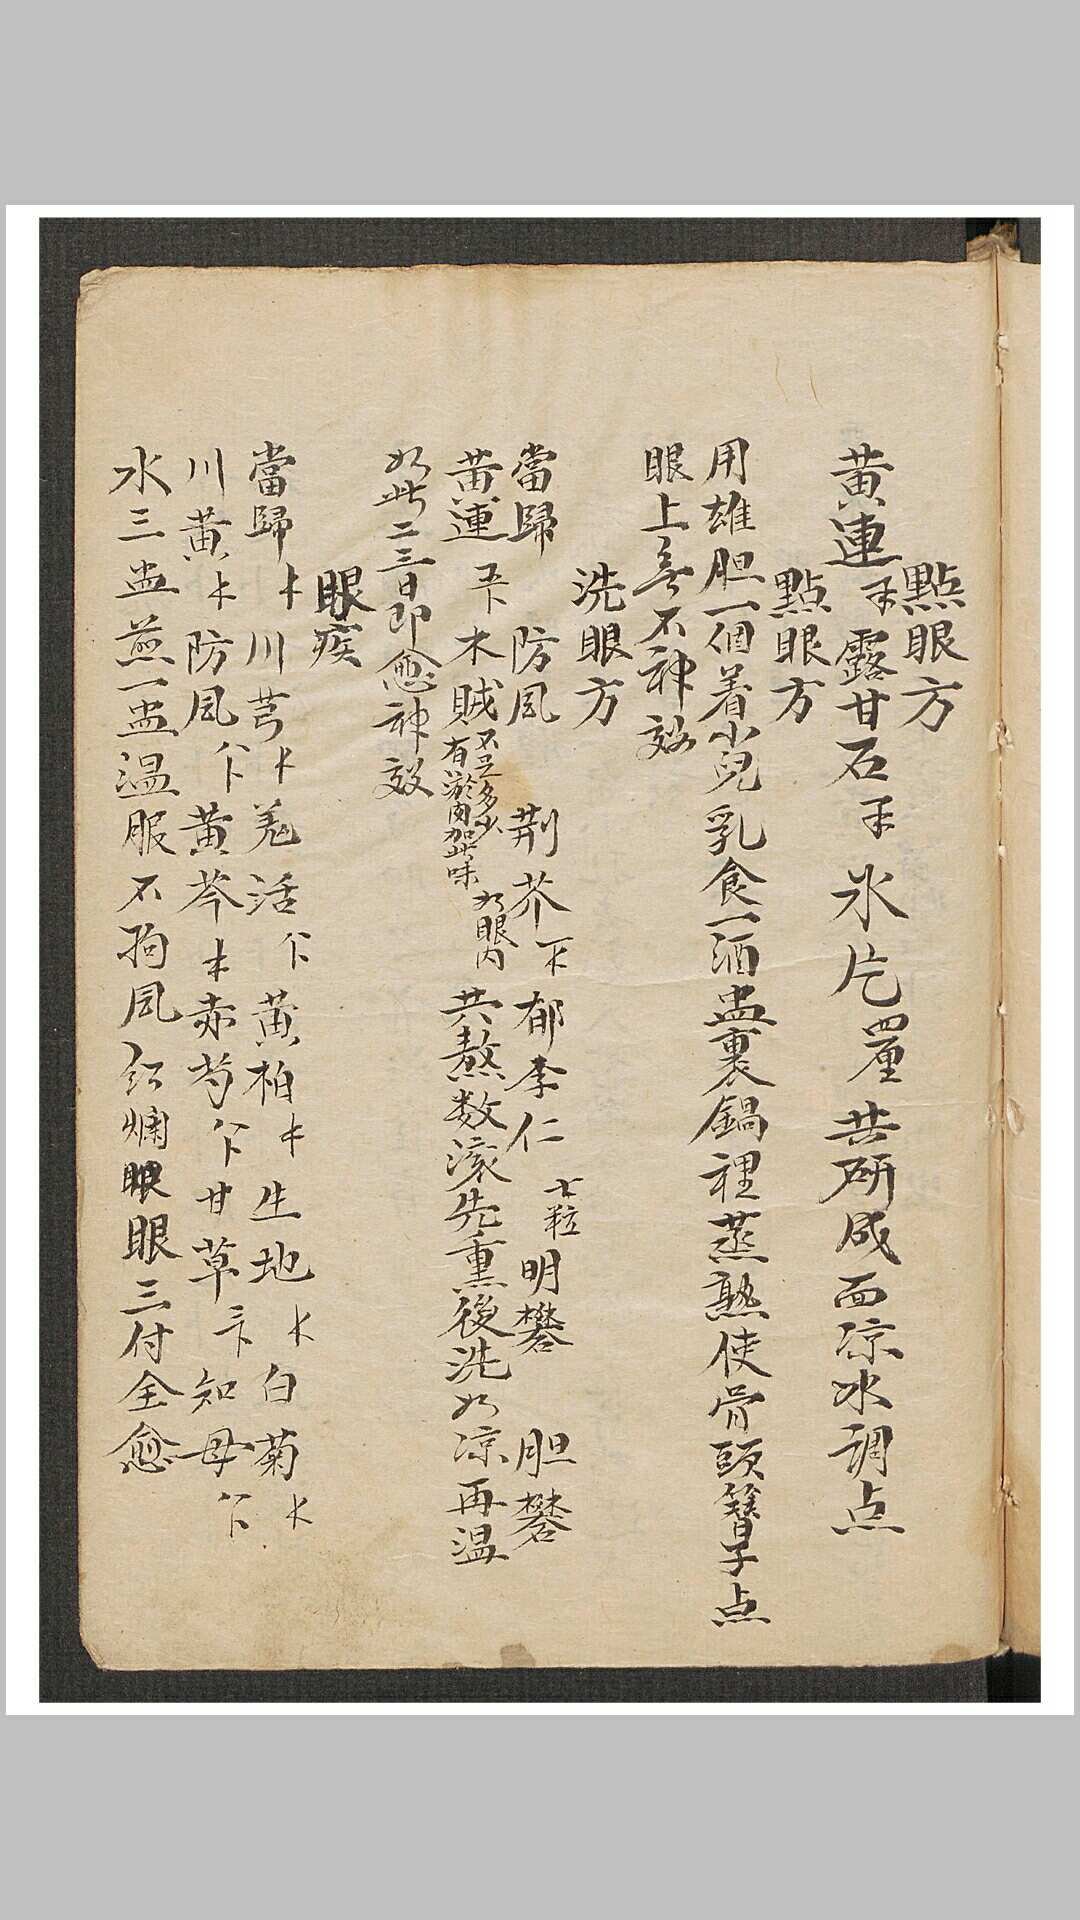 點眼方
黄連 露甘石 氷片四厘 共研成面凉水調点
點眼方
用雄胆一個着小兒乳食一酒盅裏鍋裡蒸熟使骨頭簪子点
眼上無不神效
洗眼方
當歸 防風 荆芥 郁李仁七粒 明礬 胆礬
黄連 木賊不㘴多少 如眼内有淤肉加此味 共熬数滚先熏後洗如凉再温
如此二三日即愈神效
眼疾
當歸 川芎 羗活 黄柏 生地 白菊
川黄 防風 黄芩 赤芍 甘草 知母
水三盅煎一盅温服不拘風红爛眼眼三付全愈